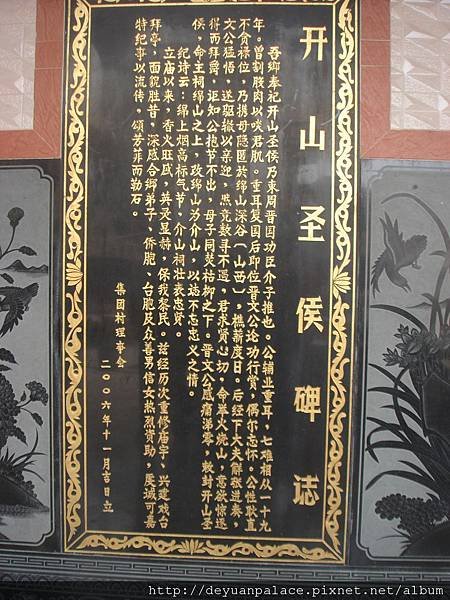 开山圣侯碑志
吾乡奉祀开山圣侯乃东周晋国功臣介子推也。公辅业重耳，七难相从一十九
年。曾割股肉以啖君肌。重耳复国后即位晋文公论功行赏，偶尔忘怀。公性耿直
不贪禄位，乃携母隐匿於绵山深谷（山西），樵薪度日。后经下大夫解张进奏，
文公猛悟，遂驱撤以亲迎，熙竞数寻不遇，君求贤心切，命举火烧山，意欲惊逐
得而拜爵，讵知公抱节不出，母子同焚枯柳之下。晋文公感痛涕零，敕封开山圣
侯，命主祠绵山之上，改绵山为介山，以志不忘忠义之情。
纪诗云：绵上烟高标气节，介山祠壮表忠贤。
立庙以来，香火旺盛，英灵显赫，保我黎民。兹经历次重修庙宇、兴建戏台
拜亭，面貌胜昔，深感合乡弟子、侨胞、台胞及众善男信女热烈资助，虔诚可嘉
特纪事以流传，颂芳菲而勒石。
集团村理事会
二00六年十一月吉日立
http://deyuanpalace.pixnet.net/album